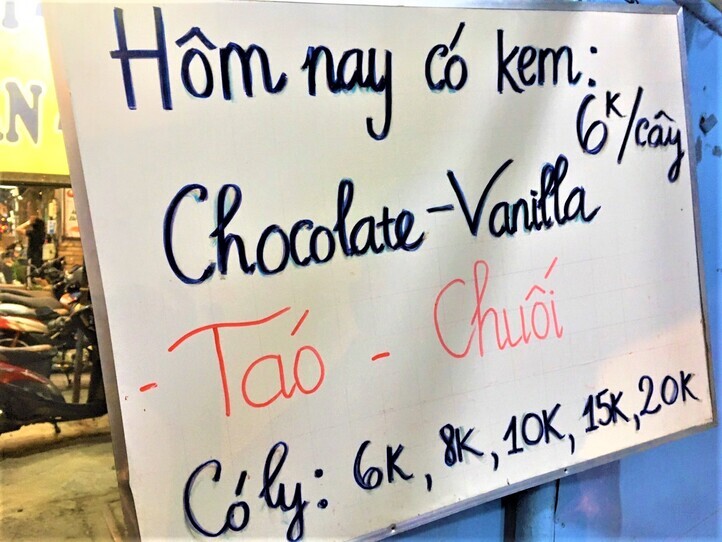 Hôm nay có kem:
6K/cây
Chocolate-Vanilla
- Táo - Chuối
Có ly: 6K, 8K, 10K, 15K, 20K